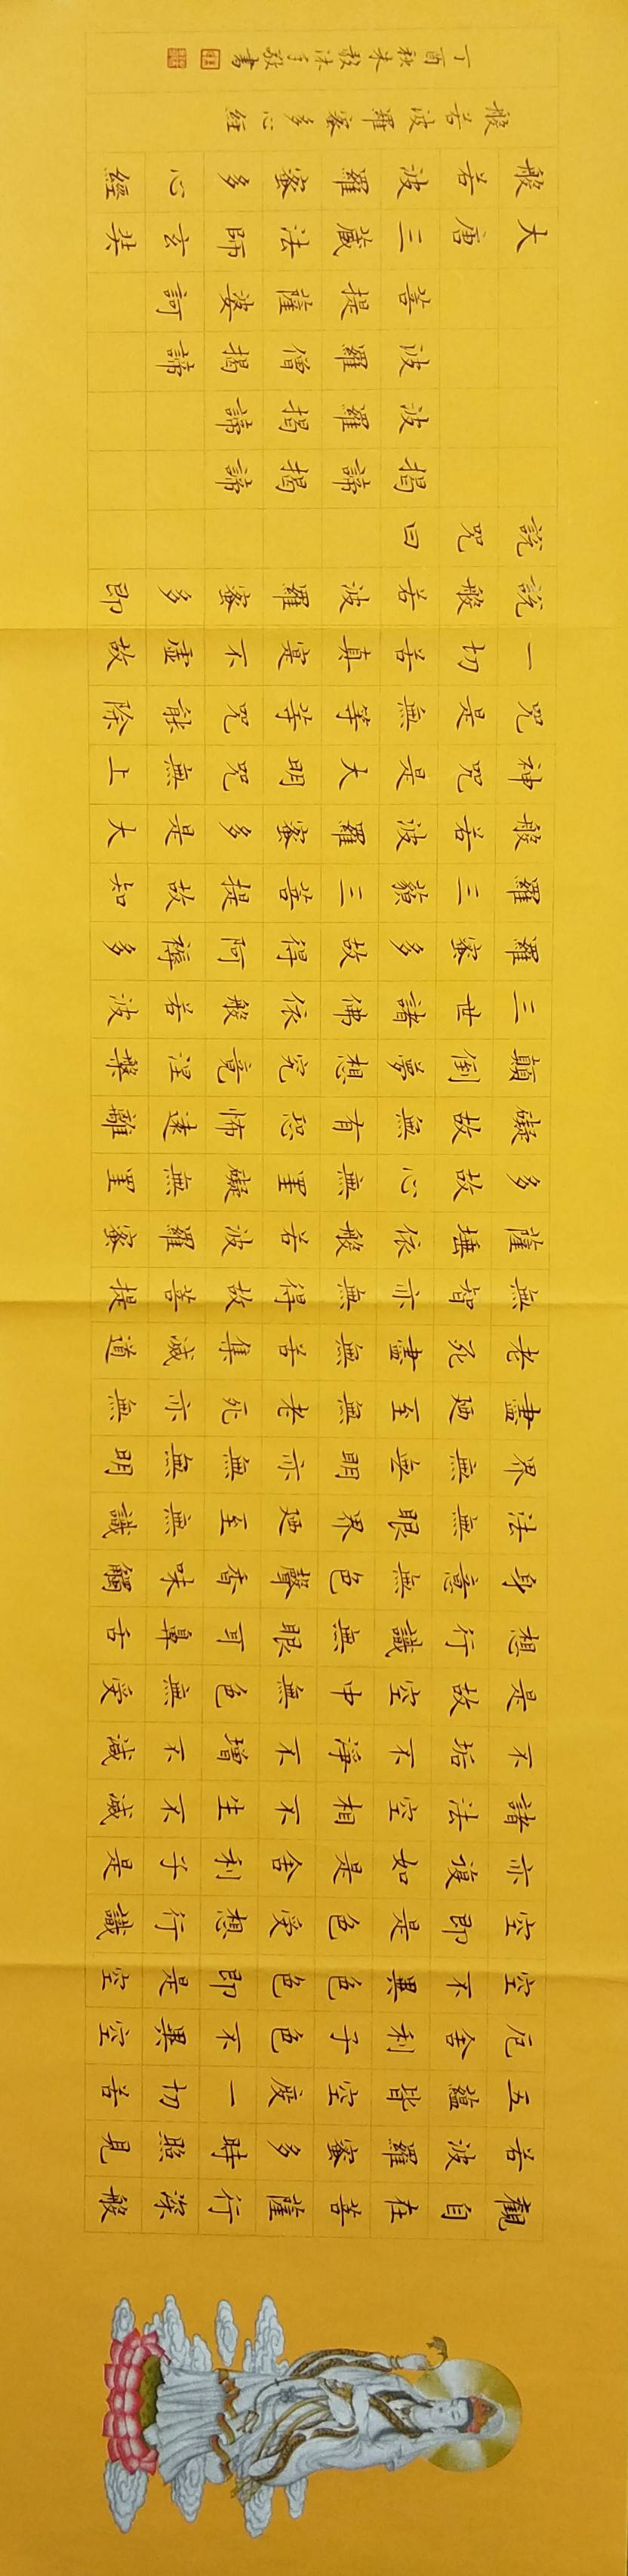 觀自在菩薩行深般
若波羅蜜多時照見
五蘊皆空度一切苦
厄舍利子色不異空
空不異色色即是空
空即是色受想行識
亦復如是舍利子是
諸法空相不生不滅
不垢不淨不增不減
是故空中無色無受
想行識無眼耳鼻舌
身意無色聲香味觸
法無眼界廼至無識
界無無明亦無無明
盡廼至無老死亦無
老死盡無苦集滅道
無智亦無得故菩提
薩埵依般若波羅蜜
多故心無罣礙無罣
礙故無有恐怖遠離
顛倒夢想究竟涅槃
三世諸佛依般若波
羅蜜多故得阿耨多
羅三藐三菩提故知
般若波羅蜜多是大
神咒是大明咒無上
咒是無等等咒能除
一切苦真實不虛故
說般若波羅蜜多即
說咒曰
揭諦揭諦
波羅揭諦
波羅僧揭諦
菩提薩婆訶
大唐三藏法師玄奘
般若波羅蜜多心經
般若波羅蜜多心經
丁酉秋木沐手敬書